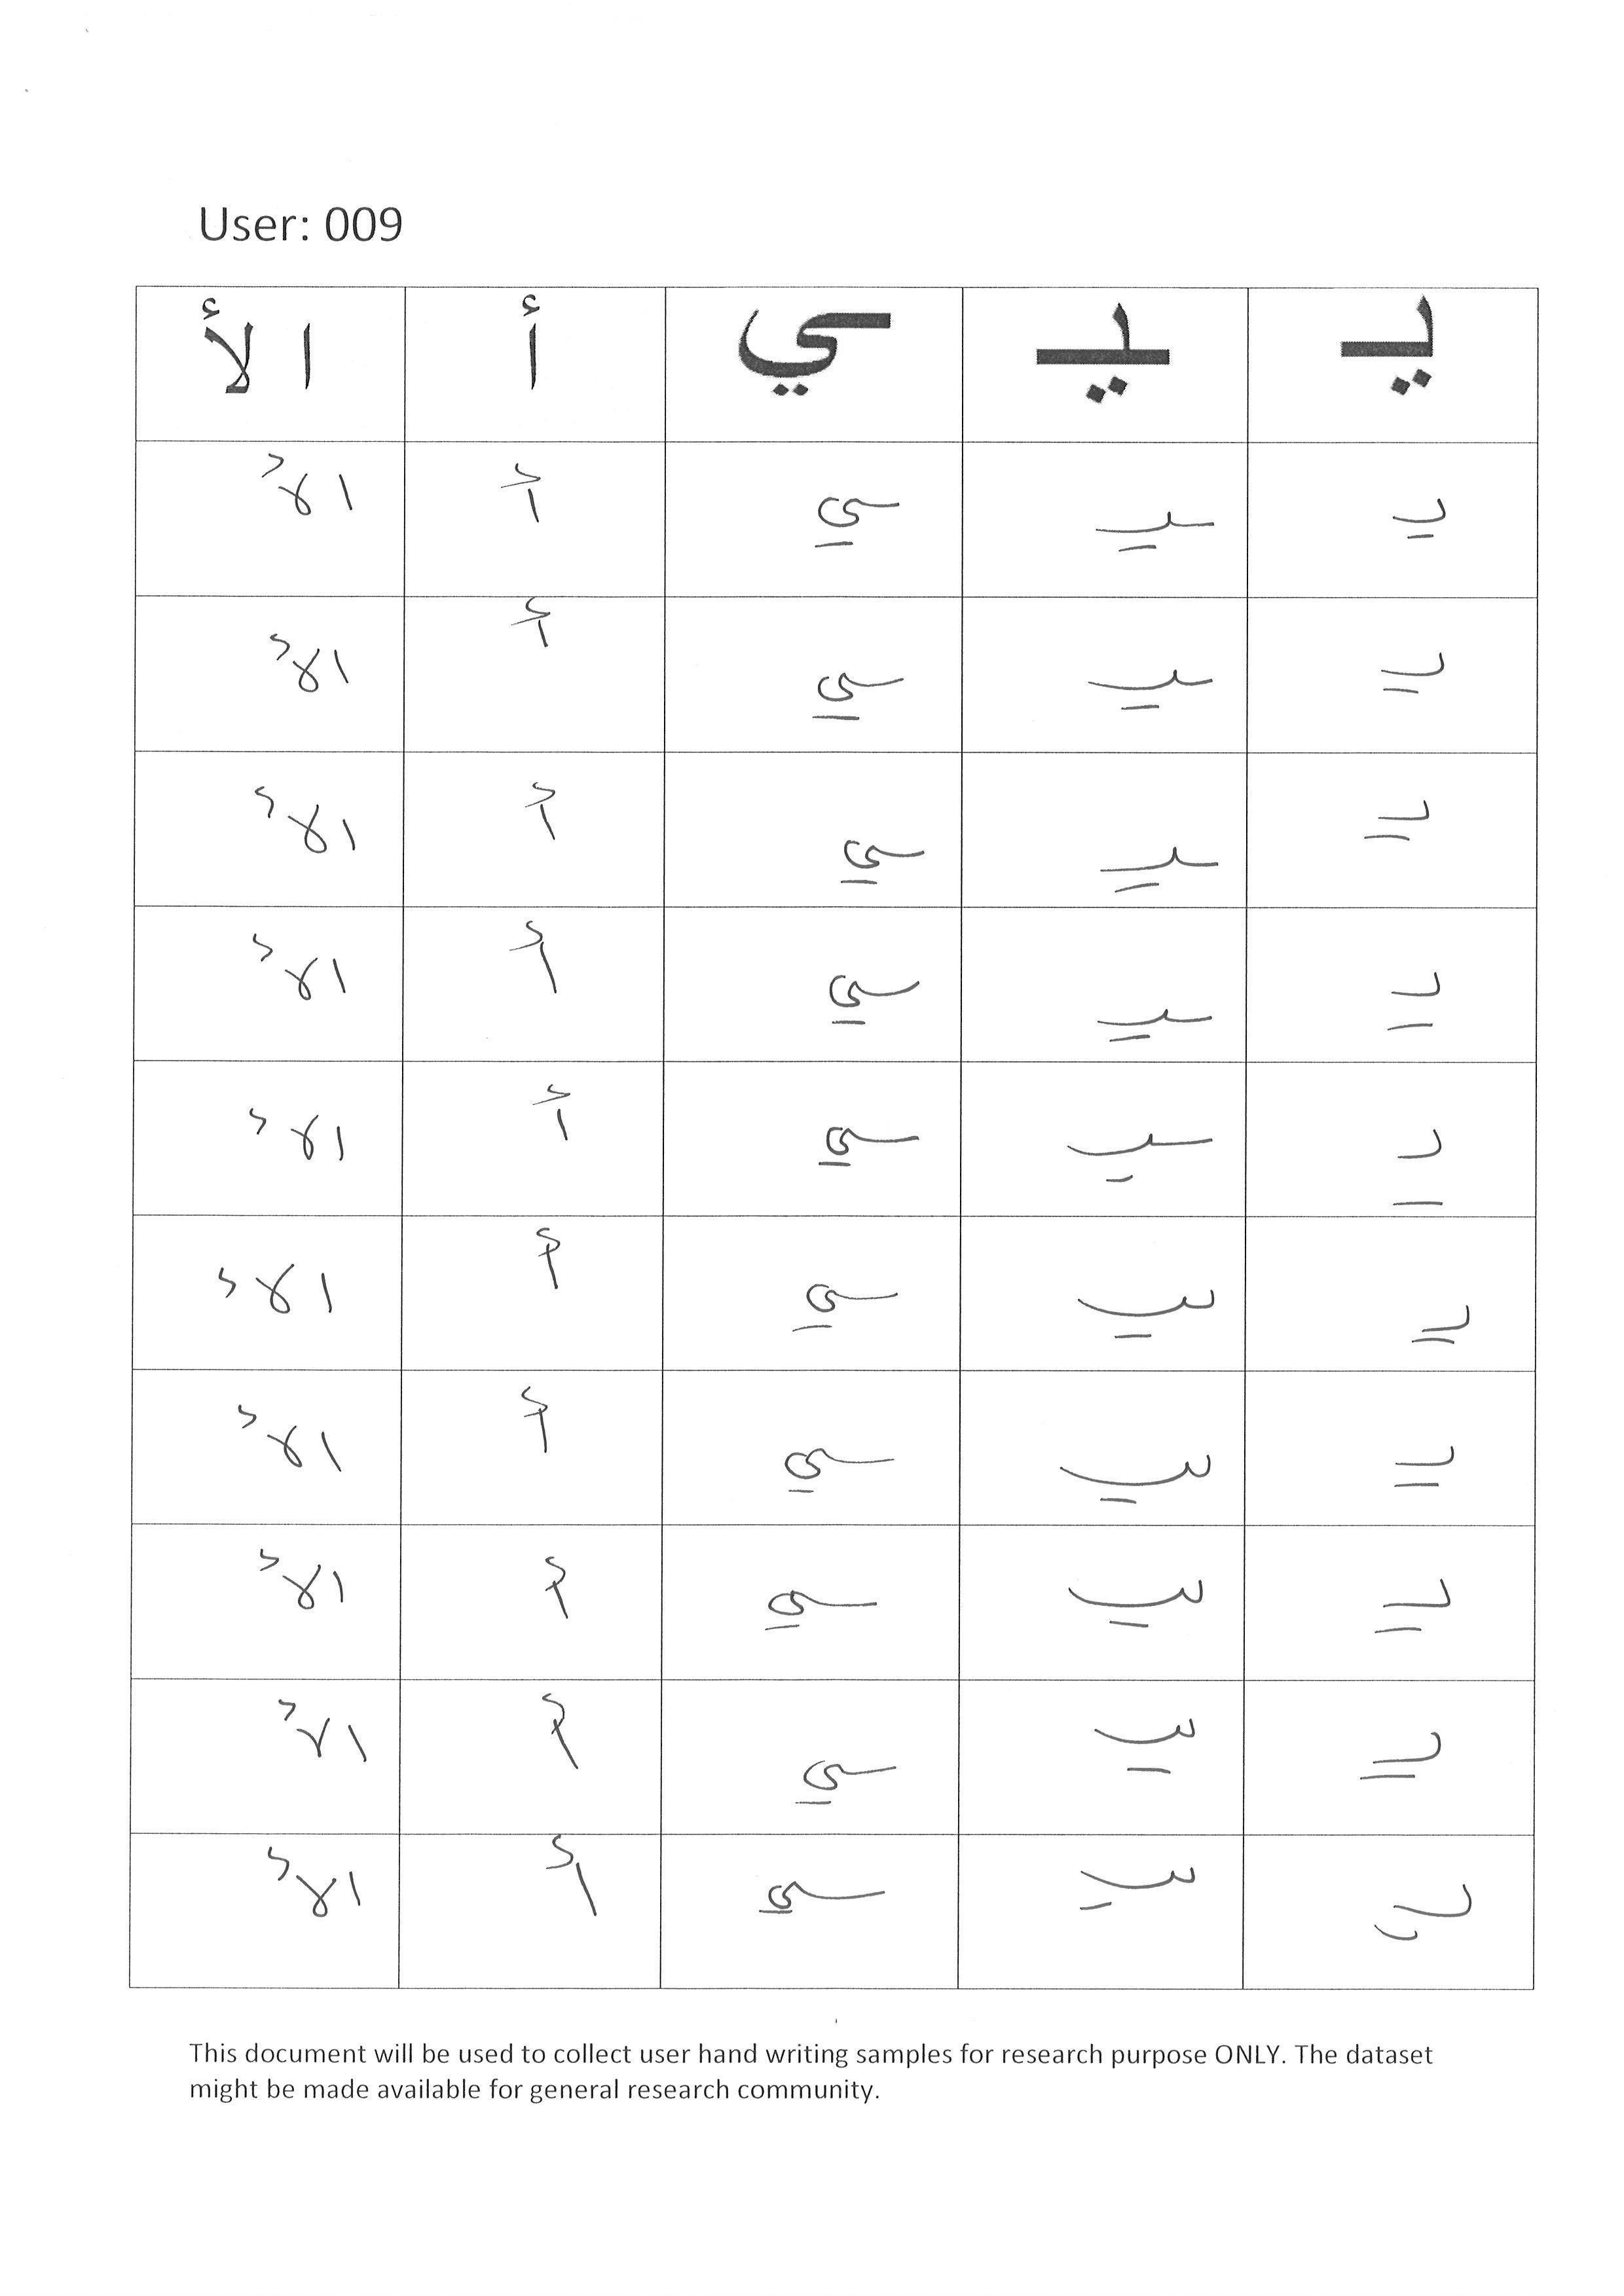 User: 009
يـ ـيـ ـي أ الأ
يـ ـيـ ـي أ الأ
يـ ـيـ ـي أ الأ
يـ ـيـ ـي أ الأ
يـ ـيـ ـي أ الأ
يـ ـيـ ـي أ الأ
يـ ـيـ ـي أ الأ
يـ ـيـ ـي أ الأ
يـ ـيـ ـي أ الأ
يـ ـيـ ـي أ الأ
يـ ـيـ ـي أ الأ
This document will be used to collect user hand writing samples for research purpose ONLY. The dataset
might be made available for general research community.